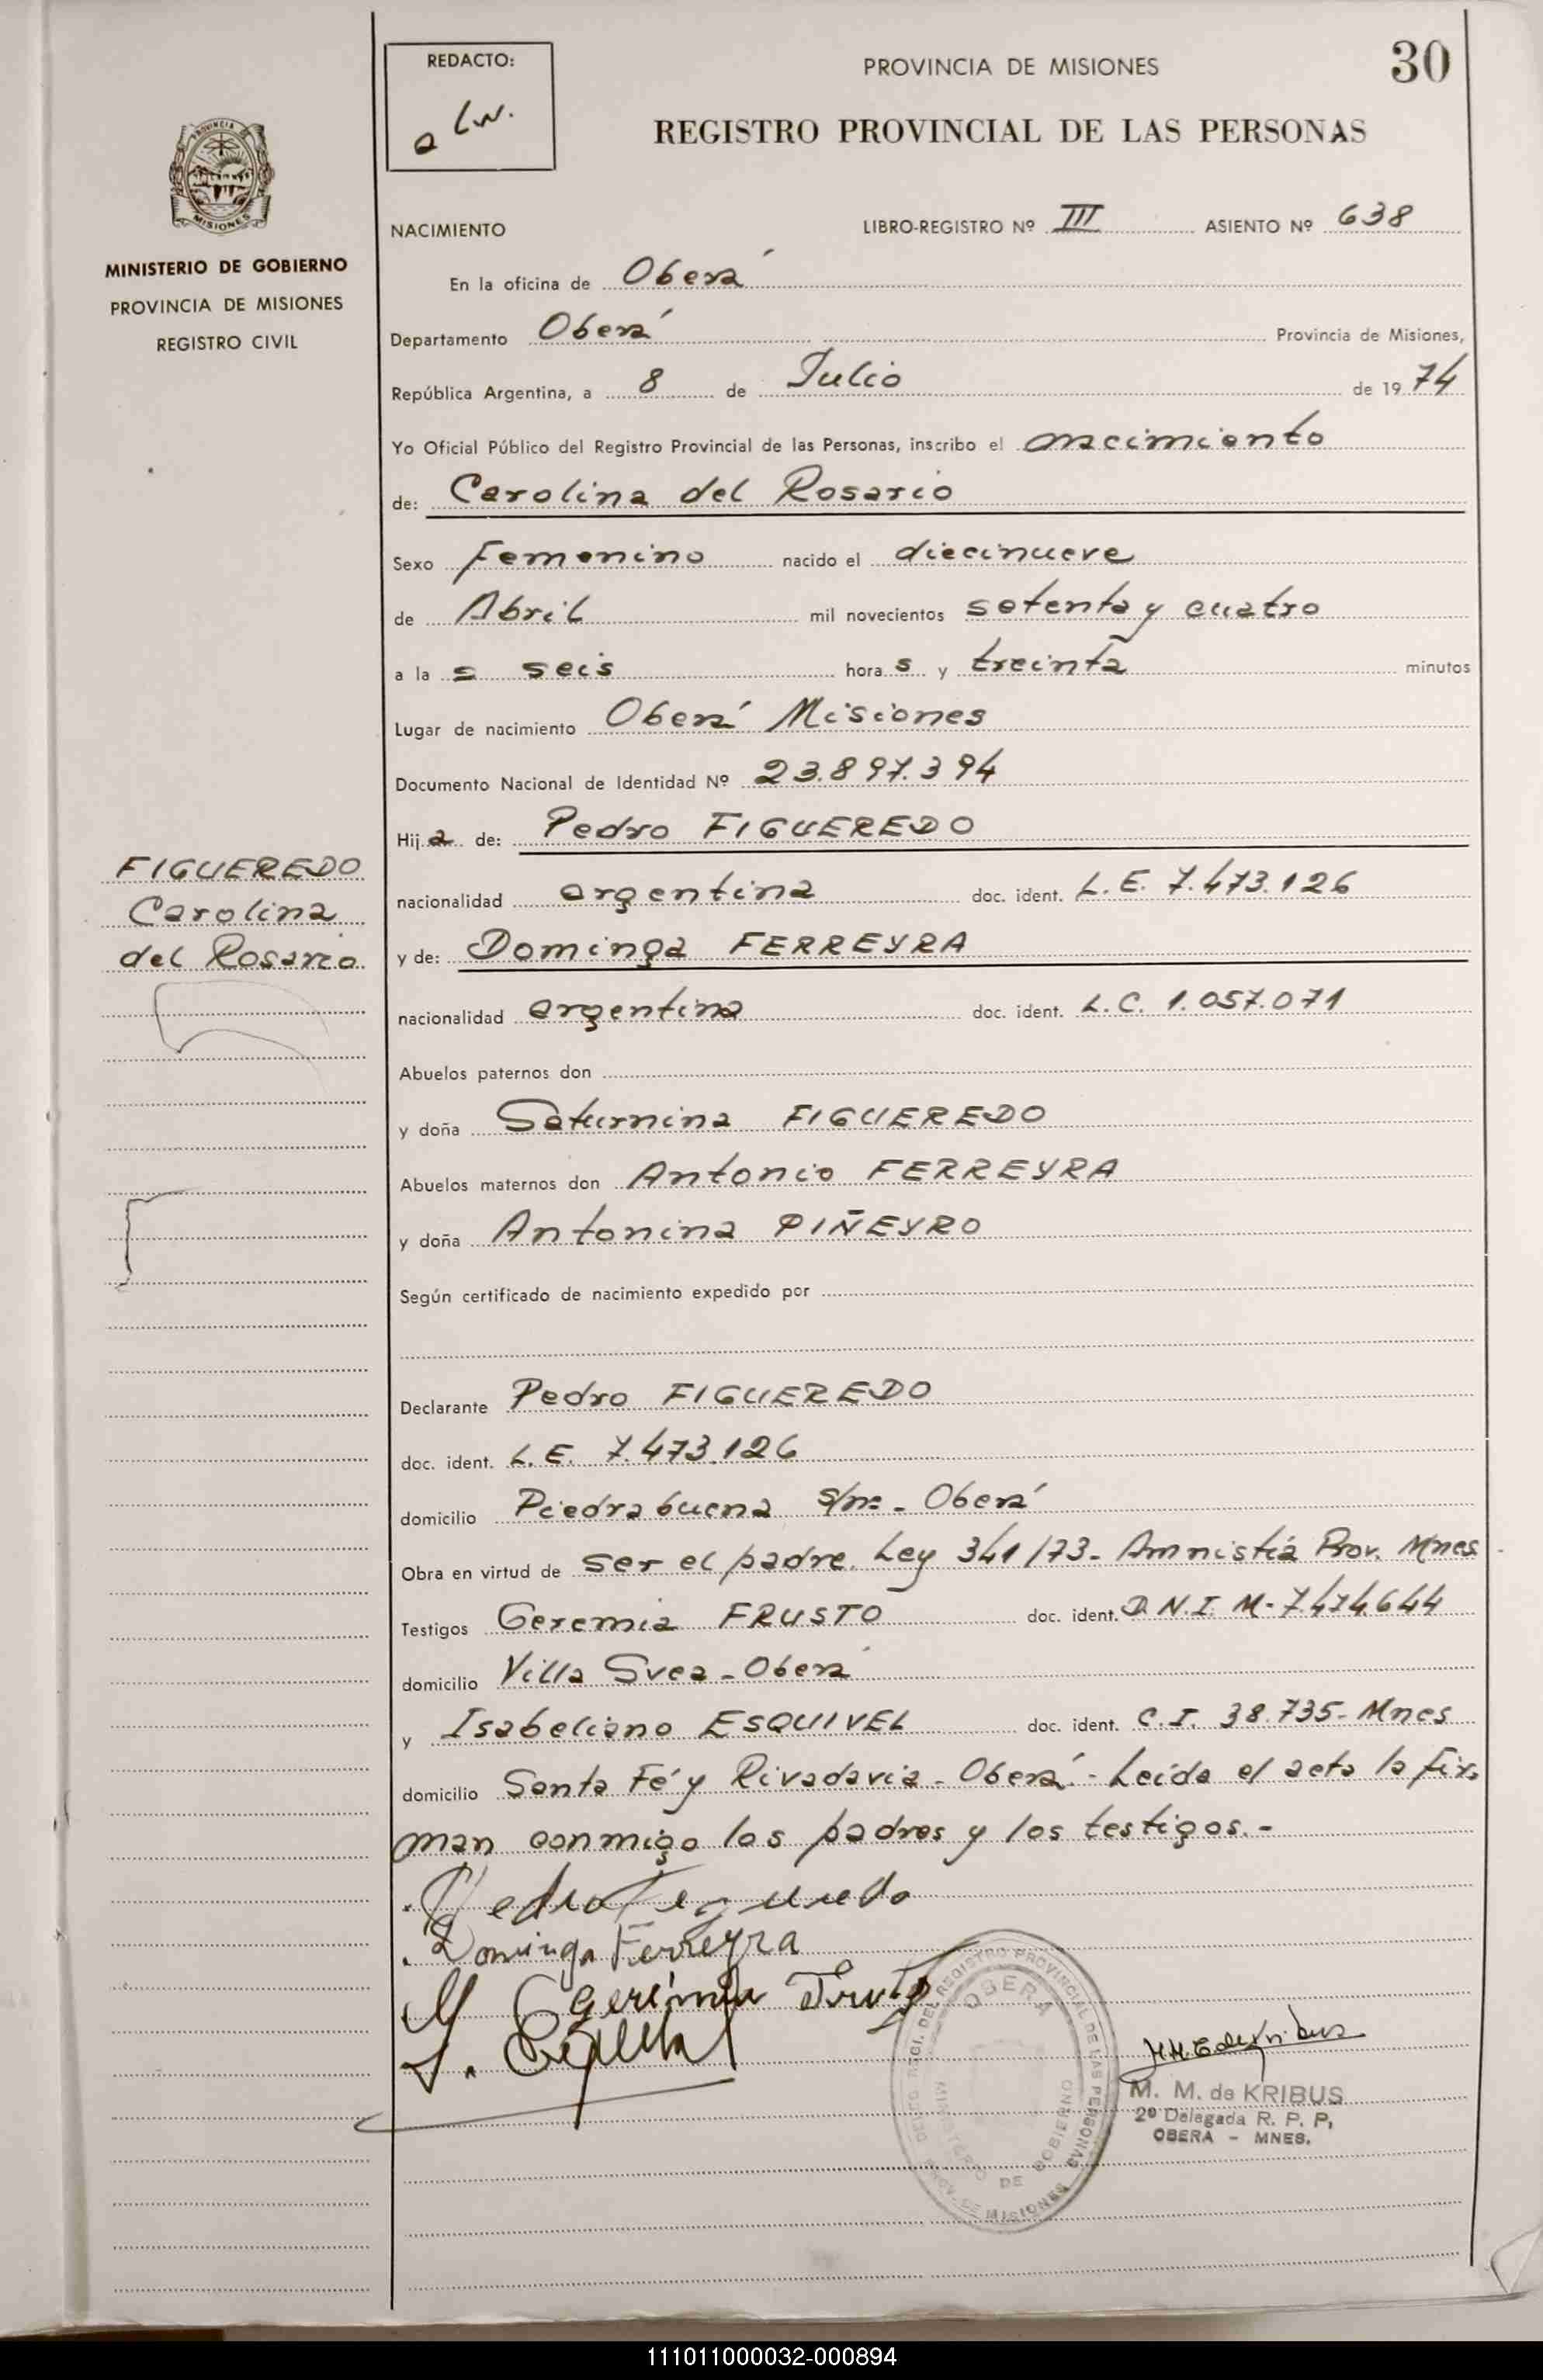 REDACTO:
PROVINCIA DE MISIONES
30
REGISTRO PROVINCIAL DE LAS PERSONAS
PROVINCIA DE
MISIONES
MINISTERIO DE GOBIERNO
PROVINCIA DE MISIONES
REGISTRO CIVIL
NACIMIENTO
LIBRO-REGISTRO Nº III ASIENTO Nº 638
En la oficina de Oberá
Departamento Oberá Provincia de Misiones,
República Argentina, a 8 de Julio de 1974
Yo Oficial Público del Registro Provincial de las Personas, inscribo el nacimiento
de: Carolina del Rosario
Sexo Femenino nacido el diecinueve
de Abril mil novecientos setenta y cuatro
a la s seis hora s y treinta minutos
Lugar de nacimiento Oberá Misiones
Documento Nacional de Identidad Nº 23.897.394
Hij a de: Pedro FIGUEREDO
FIGUEREDO
Carolina
del Rosario
nacionalidad argentina doc. ident. L.E. 7.473.126
y de: Dominga FERREYRA
nacionalidad argentina doc. ident. L.C. 1.057.071
Abuelos paternos don
y doña Saturnina FIGUEREDO
Abuelos maternos don Antonio FERREYRA
y doña Antonina PIÑEYRO
Según certificado de nacimiento expedido por
Declarante Pedro FIGUEREDO
doc. ident. L.E. 7.473.126
domicilio Piedrabuena s/n: - Oberá
Obra en virtud de ser el padre. Ley 341/73- Amnistía Prov. Mnes.
Testigos Geremia FRUSTO doc. ident. D.N.I. M-7.474.644
domicilio Villa Svea - Oberá
y Isabeliano ESQUIVEL doc. ident. C.I. 38.735- Mnes
domicilio Santa Fé y Rivadavia - Oberá.- Leída el acta la fir-
man conmigo los padres y los testigos.-
Pedro Figueredo
Dominga Ferreyra
DEL REGISTRO PROVINCIAL DE LAS PERSONAS
OBERA
MINISTERIO DE GOBIERNO
PROV. DE MISIONES
M. M. de KRIBUS
2º Delegada R. P. P.
OBERA - MNES.
111011000032-000894